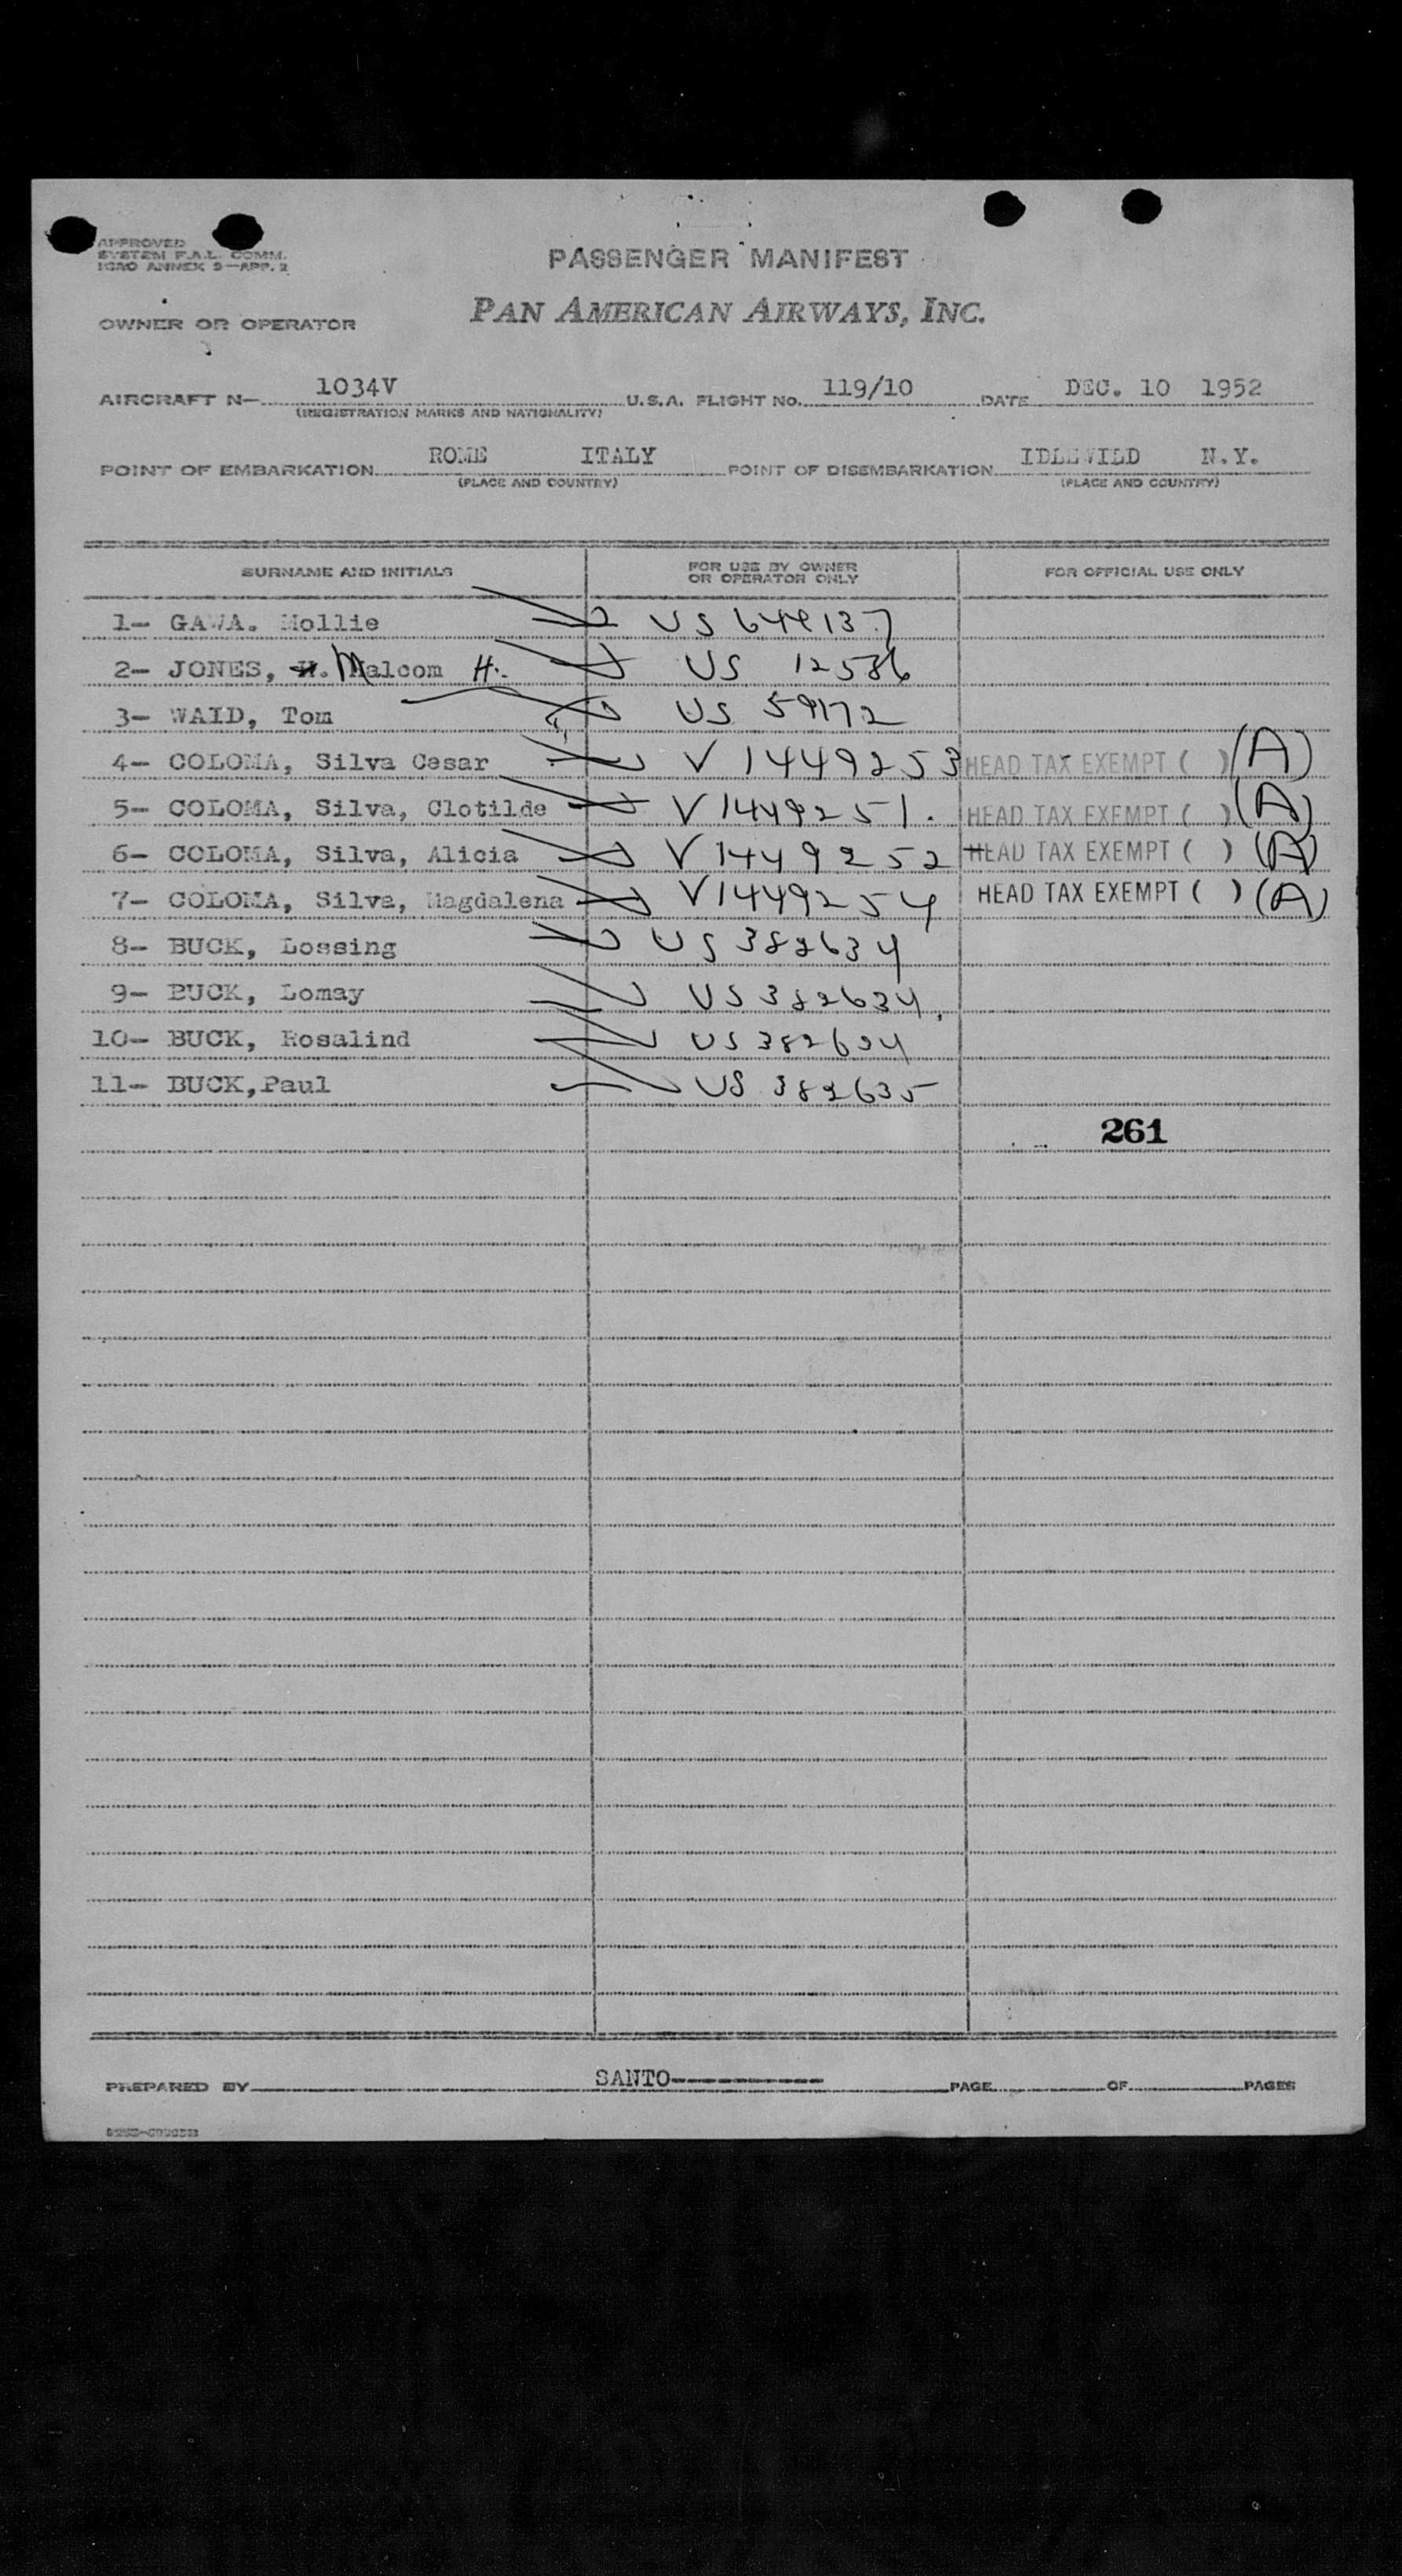 APPROVED
SYSTEM F.A.L. COMM.
ICAO ANNEX 9—APP. 2
PASSENGER MANIFEST
OWNER OR OPERATOR PAN AMERICAN AIRWAYS, INC.
AIRCRAFT N— 1034V U.S.A. FLIGHT NO. 119/10 DATE DEC. 10 1952
(REGISTRATION MARKS AND NATIONALITY)
POINT OF EMBARKATION ROME ITALY POINT OF DISEMBARKATION IDLEWILD N.Y.
(PLACE AND COUNTRY) (PLACE AND COUNTRY)
SURNAME AND INITIALS FOR USE BY OWNER OR OPERATOR ONLY FOR OFFICIAL USE ONLY
1— GAWA. Mollie US
2— JONES, H. Malcom H. US 12586
3— WAID, Tom US 59172
4— COLOMA, Silva Cesar V 1449253 HEAD TAX EXEMPT ( ) (A)
5— COLOMA, Silva, Clotilde V1449251. HEAD TAX EXEMPT ( ) (A)
6— COLOMA, Silva, Alicia V1449252 HEAD TAX EXEMPT ( ) (A)
7— COLOMA, Silva, Magdalena V1449254 HEAD TAX EXEMPT ( ) (A)
8— BUCK, Lossing US 382634
9— BUCK, Lomay US 382634
10— BUCK, Rosalind US 382634
11— BUCK,Paul US 382635
261
PREPARED BY SANTO---------- PAGE OF PAGES